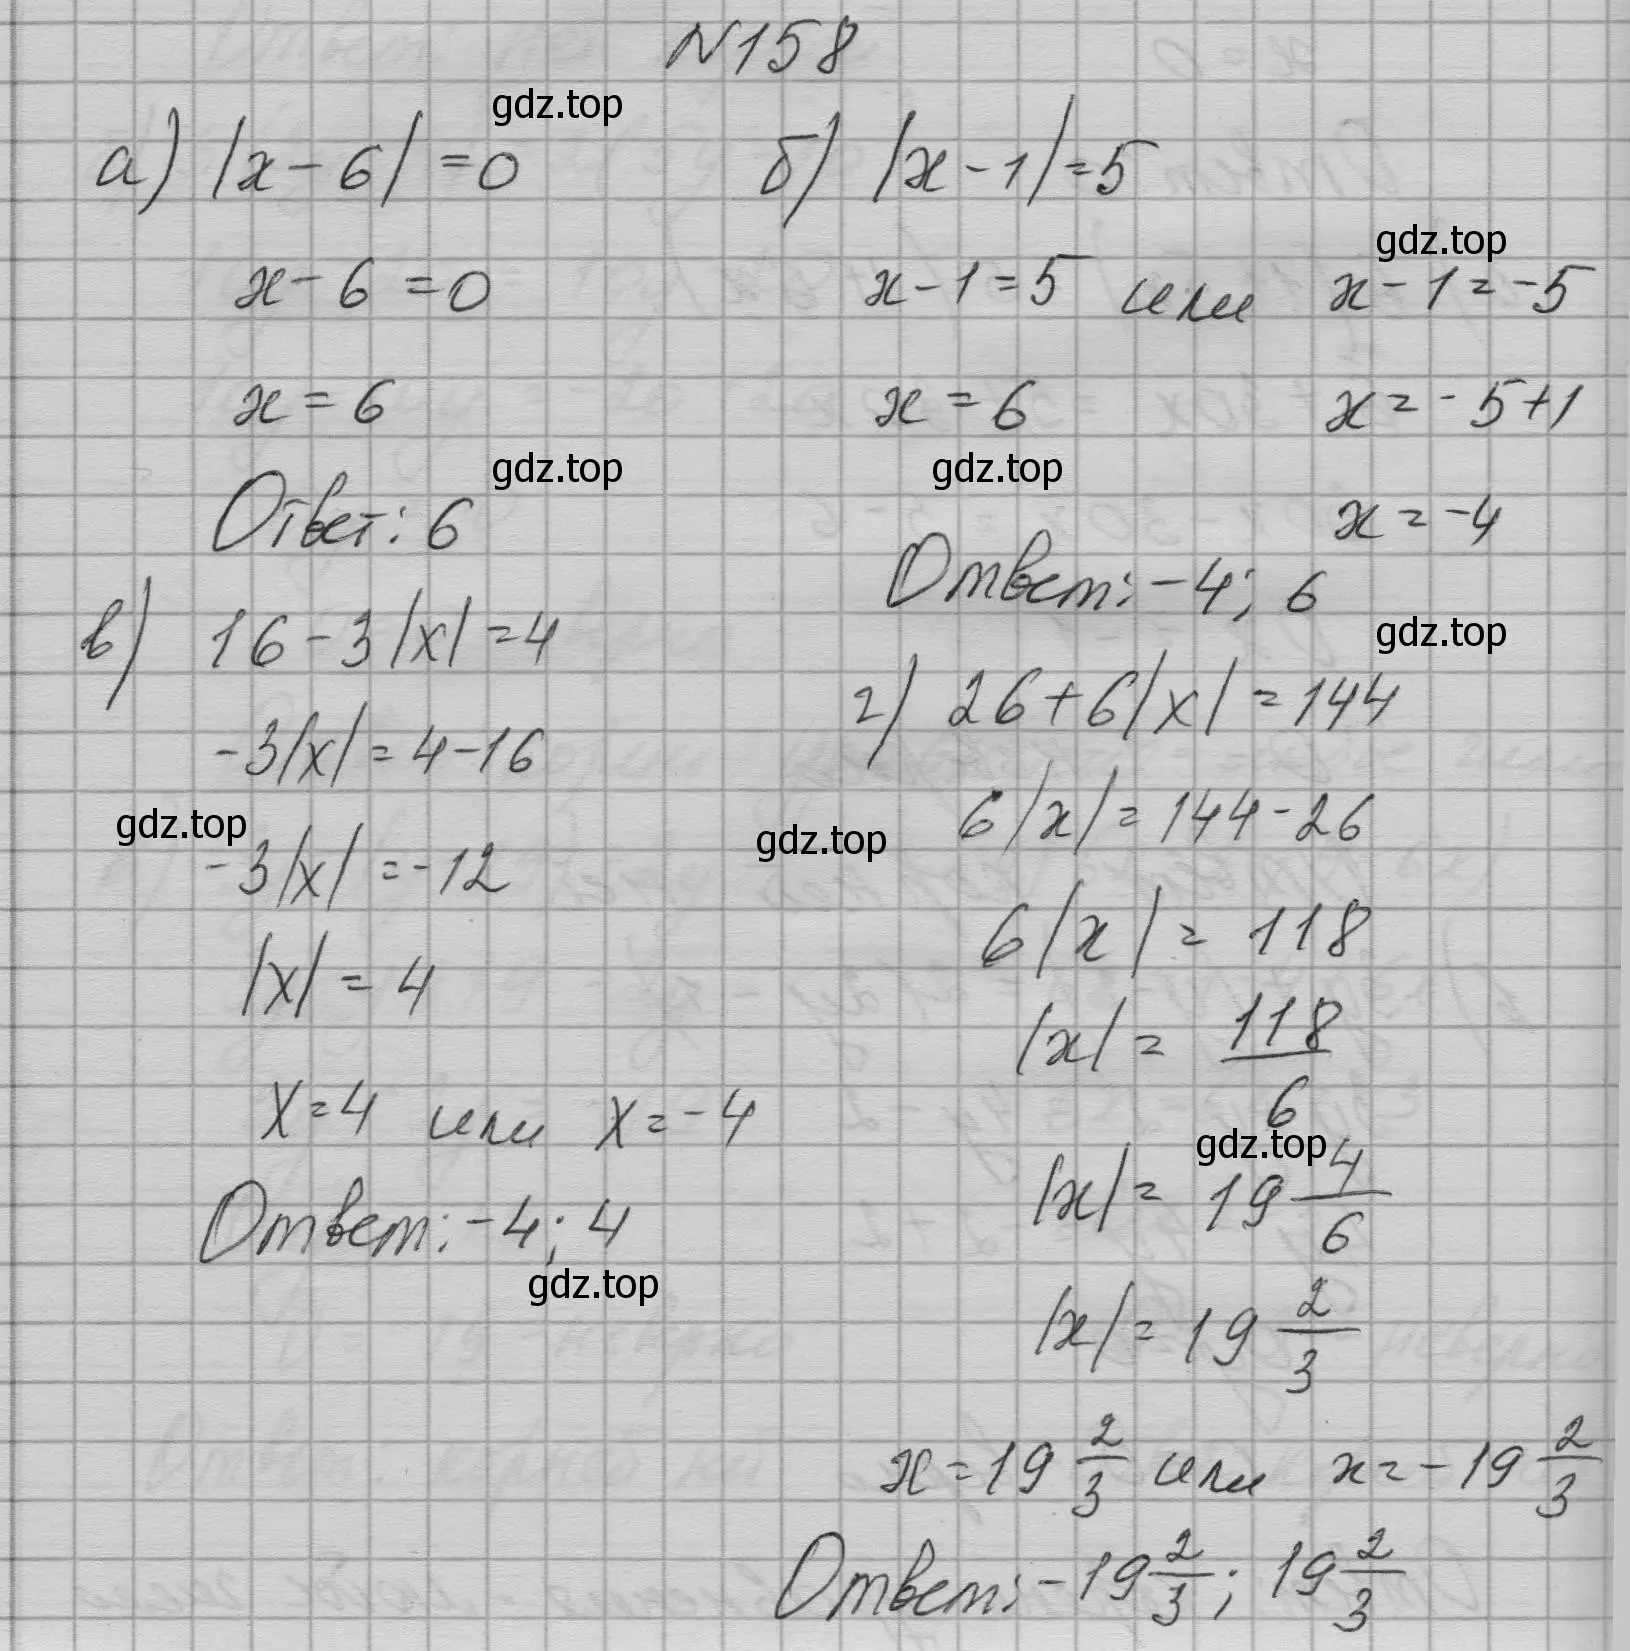 N158
gdz.top
а) |x - 6| = 0
x - 6 = 0
x = 6
gdz.top
Ответ: 6
б) |x - 1| = 5
gdz.top
x - 1 = 5 или x - 1 = -5
x = 6 x = -5 + 1
gdz.top
x = -4
Ответ: -4; 6
gdz.top
в) 16 - 3|x| = 4
-3|x| = 4 - 16
gdz.top
-3|x| = -12
|x| = 4
x = 4 или x = -4
Ответ: -4; 4
gdz.top
г) 26 + 6|x| = 144
6|x| = 144 - 26
gdz.top
6|x| = 118
|x| = 118/6
gdz.top
|x| = 19 4/6
|x| = 19 2/3
x = 19 2/3 или x = -19 2/3
Ответ: -19 2/3; 19 2/3